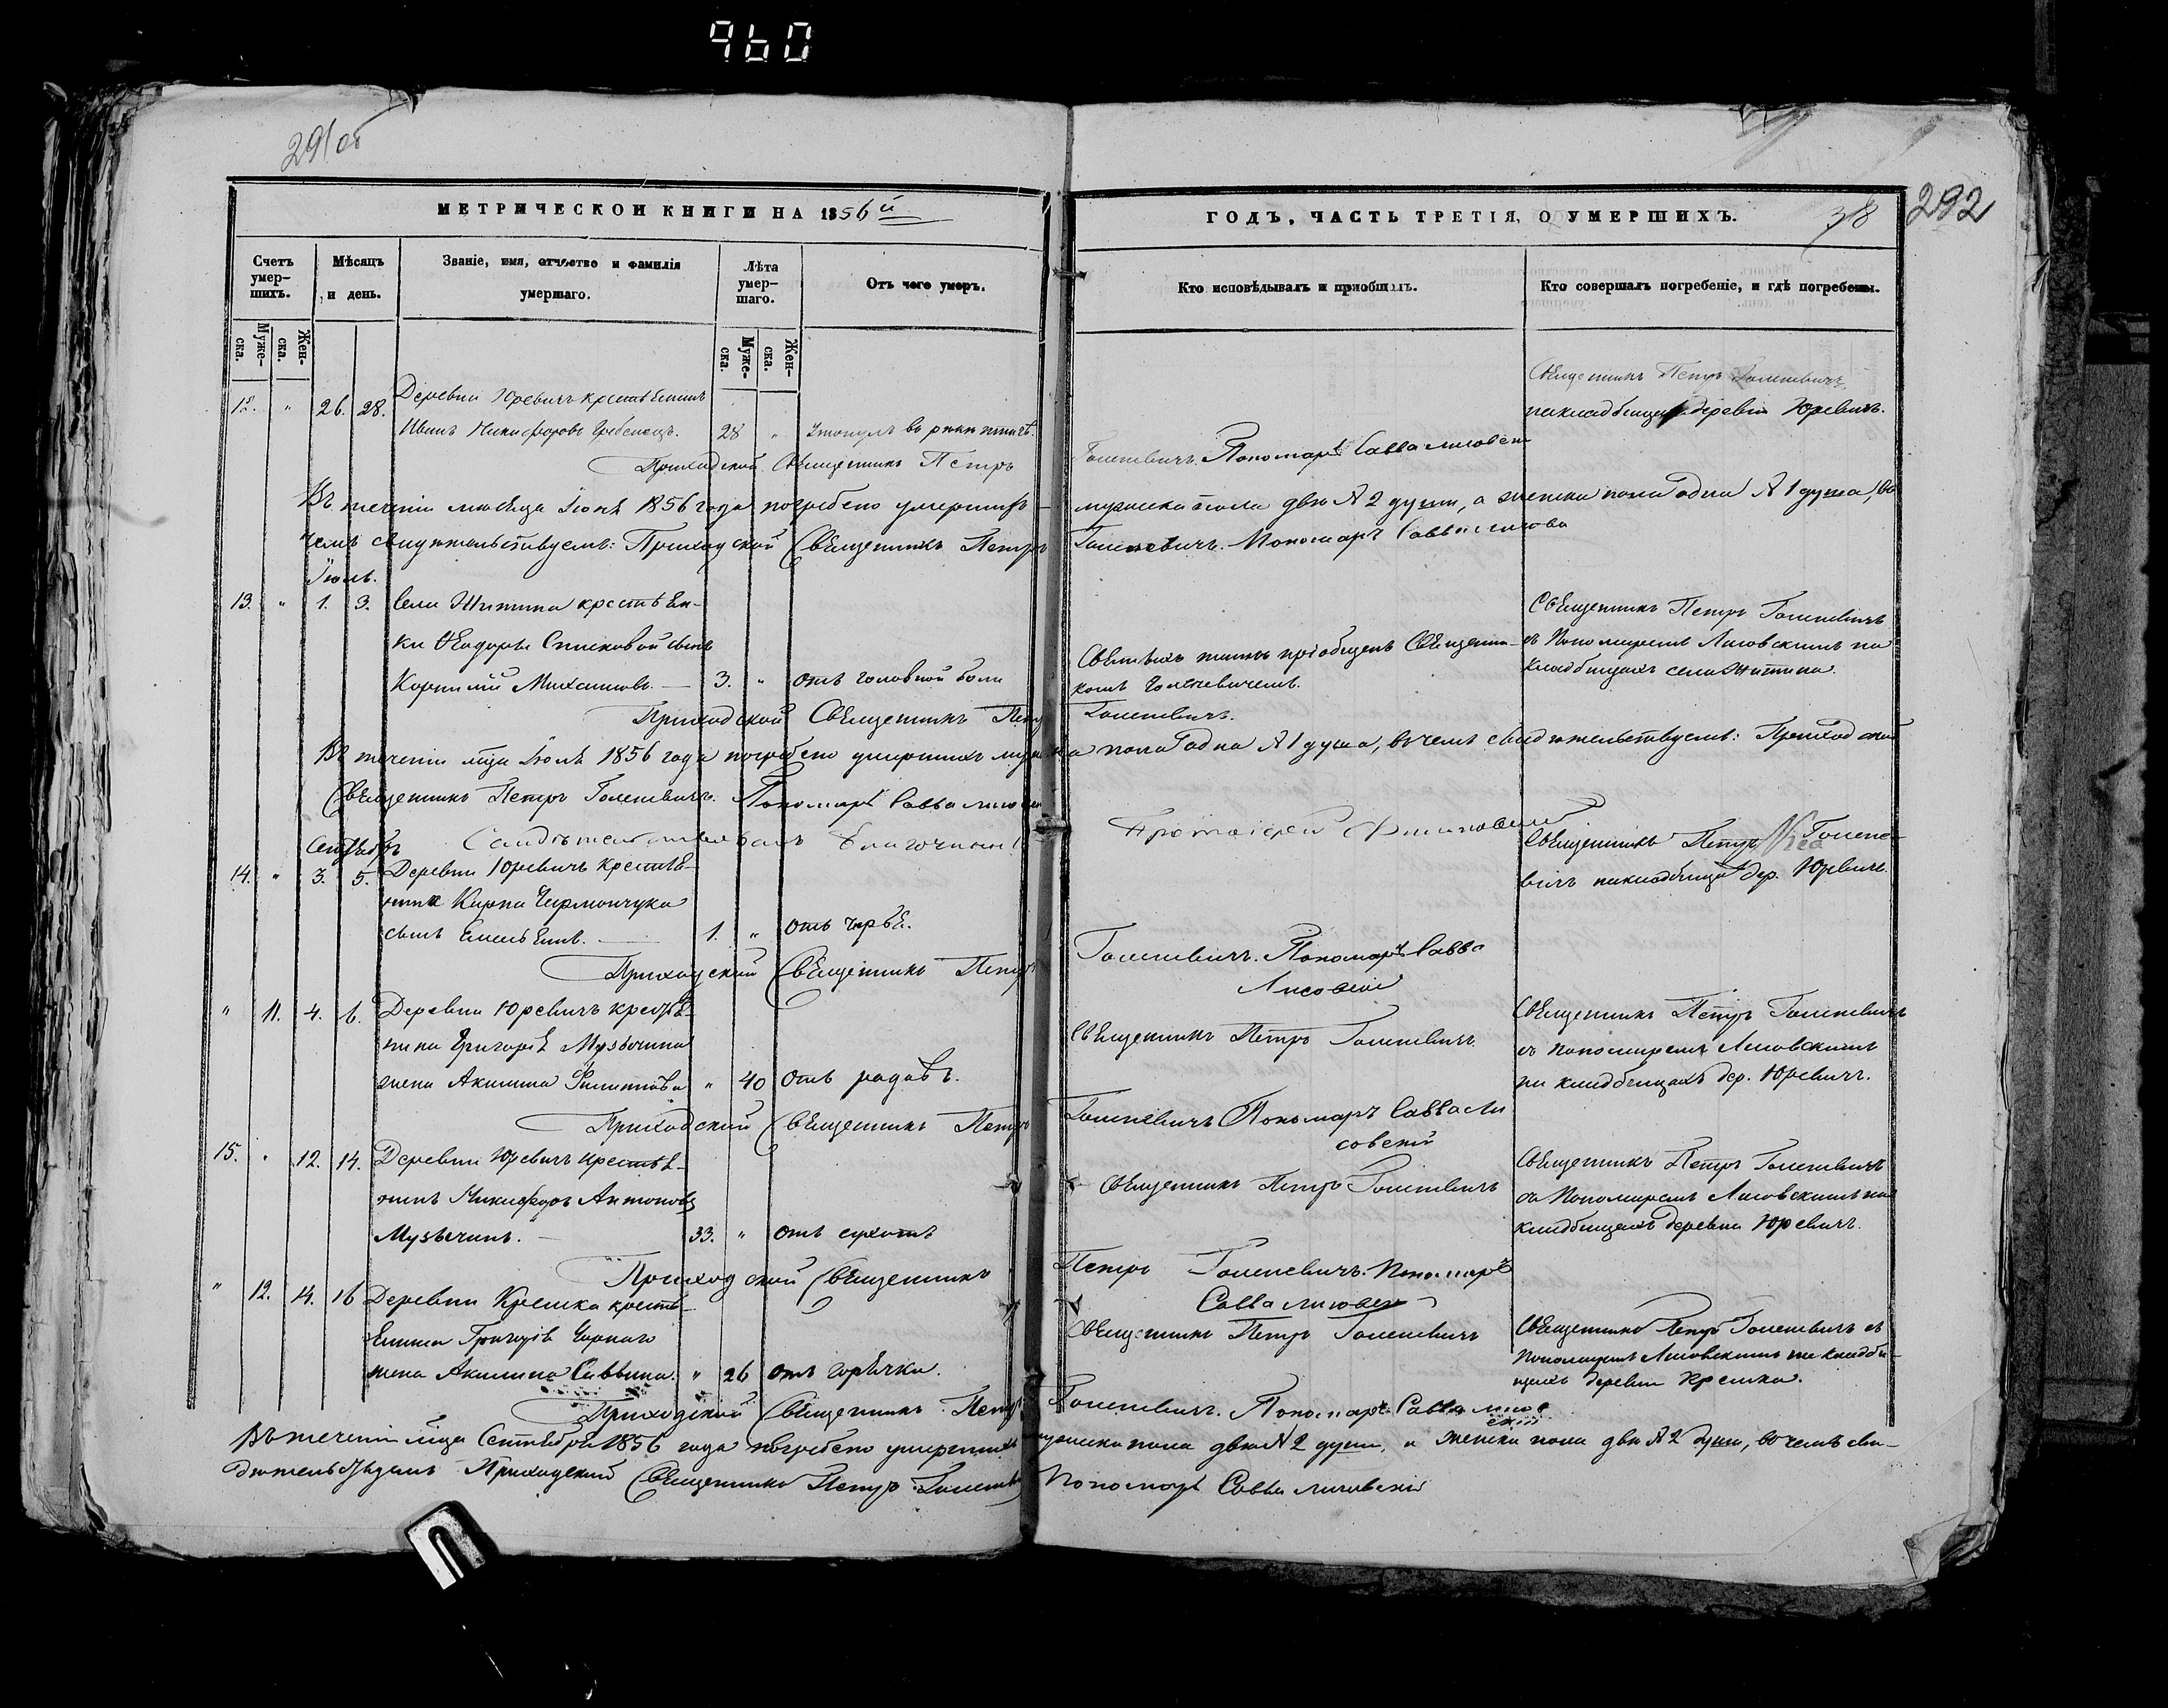 960
291об
МЕТРИЧЕСКОЙ КНИГИ НА 1856й
ГОДЪ, ЧАСТЬ ТРЕТІЯ, О УМЕРШИХЪ.
38
292
Счетъ умер-
шихъ.
Мѣсяцъ
и день.
Званіе, имя, отчество и фамилія
умершаго.
Лѣта
умер-
шаго.
Отъ чего умеръ.
Кто исповѣдывалъ и пріобщалъ.
Кто совершалъ погребеніе, и гдѣ погребены.
Муже-
ска.
Жен-
ска.
Муже-
ска.
Жен-
ска.
12. " 26. 28. Деревни Юревичъ крестьянинъ
Иванъ Никифоровъ Гребенецъ. 28 "
Священникъ Петръ Голеневичъ
на кладбищахъ деревни Юревичъ.
Приходской Священникъ Петръ Голеневичъ. Пономаръ Савва Лисовскі
Въ теченіи мѣсяца Іюня 1856 года погребено умершихъ мужеска пола двѣ № 2 души, а женска пола одна № 1 душа, въ
чемъ свидѣтельствуемъ: Приходской Священникъ Петръ Голеневичъ. Пономаръ Савва Лисовс
Іюль.
13. " 1. 3. Села Житина крестьян-
ки Ѳеодоры сынъ
Корнилій Михаиловъ. — 3. " отъ головной боли
Святыхъ таинъ пріобщенъ Священни-
комъ Голеневичемъ.
Священникъ Петръ Голеневичъ
съ Пономаремъ Лисовскимъ на
кладбищахъ села Житина.
Приходской Священникъ Петръ Голеневичъ.
Въ теченіи мца Іюля 1856 года погребено умершихъ мужеска пола одна № 1 душа, въ чемъ свидѣтельствуемъ: Приходской
Священникъ Петръ Голеневичъ. Пономаръ Савва Лисовскі
Свидѣтельствовалъ Благочинный Протоіерей
Сентябрь
14. " 3. 5. Деревни Юревичъ крестья-
нина Карпа
сынъ Емельянъ. — 1. "
Священникъ Петръ Голене-
вичъ на кладбищахъ дер. Юревичъ.
Приходской Священникъ Петръ Голеневичъ. Пономаръ Савва
Лисовскій
" 11. 4. 6. Деревни Юревичъ крестья-
нина Григорія Музычина
жена Акилина Филиппова " 40 отъ родовъ.
Священникъ Петръ Голеневичъ
Священникъ Петръ Голеневичъ
съ пономаремъ Лисовскимъ
на кладбищахъ дер. Юревичъ.
Приходской Священникъ Петръ Голеневичъ Пономаръ Савва Ли
совскій
15. " 12. 14. Деревни Юревичъ крестья-
нинъ Никифоръ Антоновъ
Музычинъ. — 33. " отъ сухотъ
Священникъ Петръ Голеневичъ
Священникъ Петръ Голеневичъ
съ Пономаремъ Лисовскимъ на
кладбищахъ деревни Юревичъ.
Приходской Священникъ Петръ Голеневичъ. Пономаръ
Савва Лисовск
" 12. 14. 16 Деревни Крешка кресть-
янина Григорія Чорнаго
жена Акилина Саввина. " 26 отъ горячки.
Священникъ Петръ Голеневичъ
Священникъ Петръ Голеневичъ съ
пономаремъ Лисовскимъ на кладби-
щахъ деревни Крешка.
Приходской Священникъ Петръ Голеневичъ. Пономаръ Савва Лисов
скій
Въ теченіи мца Сентября 1856 года погребено умершихъ мужеска пола двѣ № 2 души, и женска пола двѣ № 2 души, въ чемъ сви-
Приходской Священникъ Петръ Пономаръ Савва Лисовскій